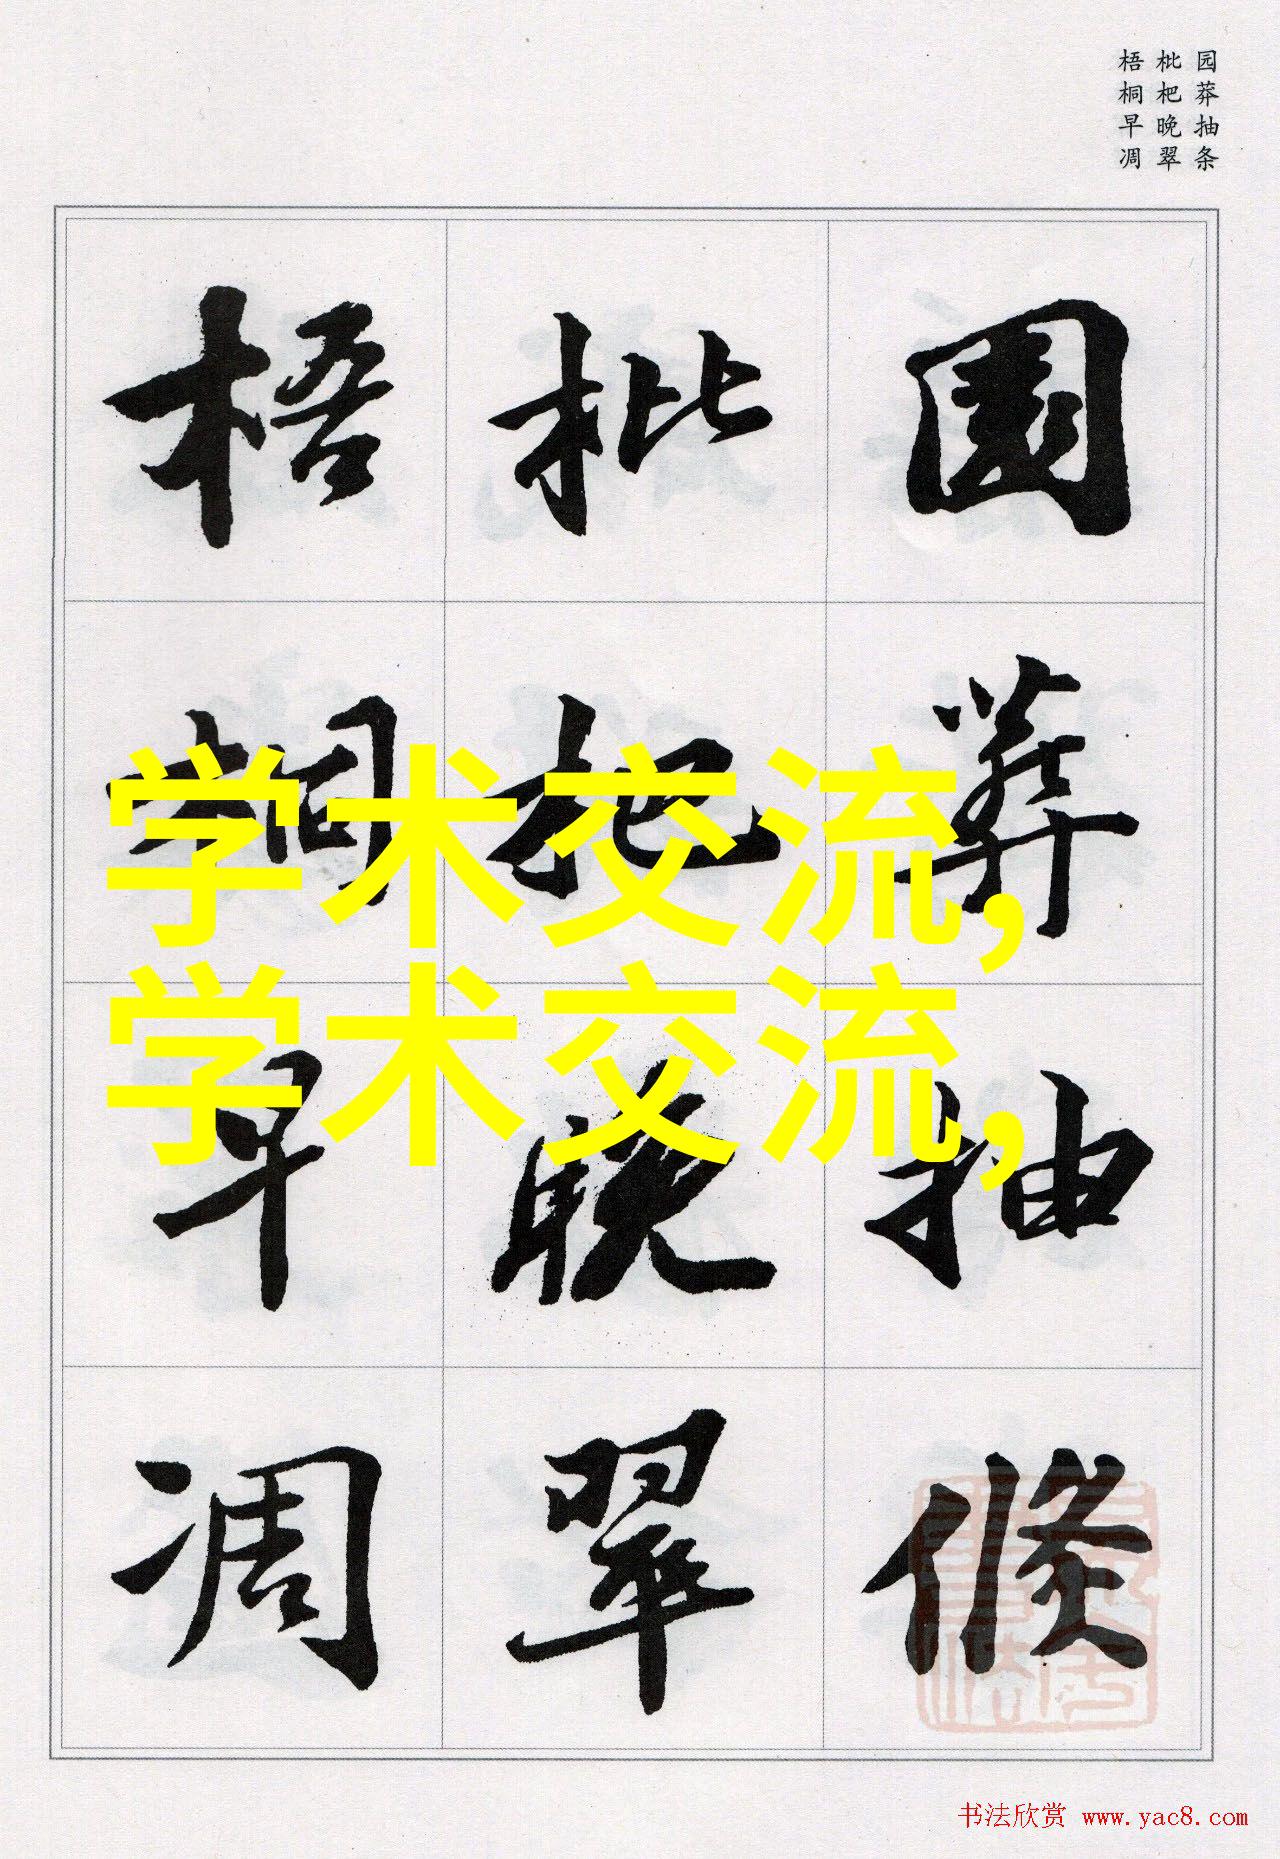 园莽抽条
枇杷晚翠
梧桐早凋
園莽抽條
枇杷晚翠
梧桐早凋
学术交流,
学术交流,
书法欣赏 www.yac8.com